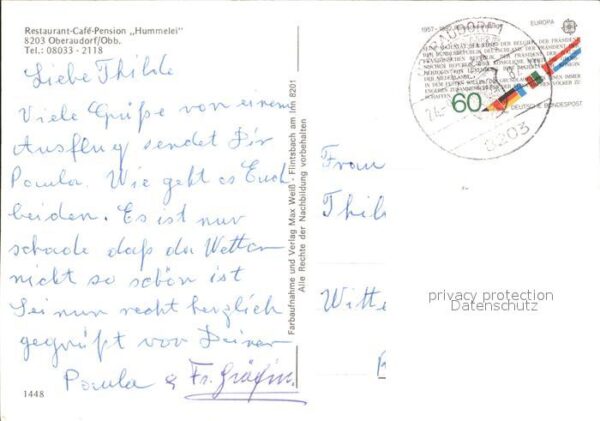 Restaurant-Café-Pension „Hummelei"
8203 Oberaudorf/Obb.
Tel.: 08033 - 2118
Liebe Thilde
Viele Grüße von einem
Ausflug sendet Dir
Paula. Wie geht es Euch
beiden. Es ist nur
schade daß das Wetter
nicht so schön ist
Sei nun recht herzlich
gegrüßt von Deiner
Paula & Fr. Gräfin.
1448
Farbaufnahme und Verlag Max Weiß · Flintsbach am Inn 8201
Alle Rechte der Nachbildung vorbehalten
EUROPA
60
DEUTSCHE BUNDESPOST
8203
Frau
Thil
Witte
privacy protection
Datenschutz